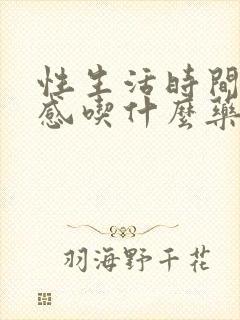 性生活時間
感喫什麼藥
羽海野千花